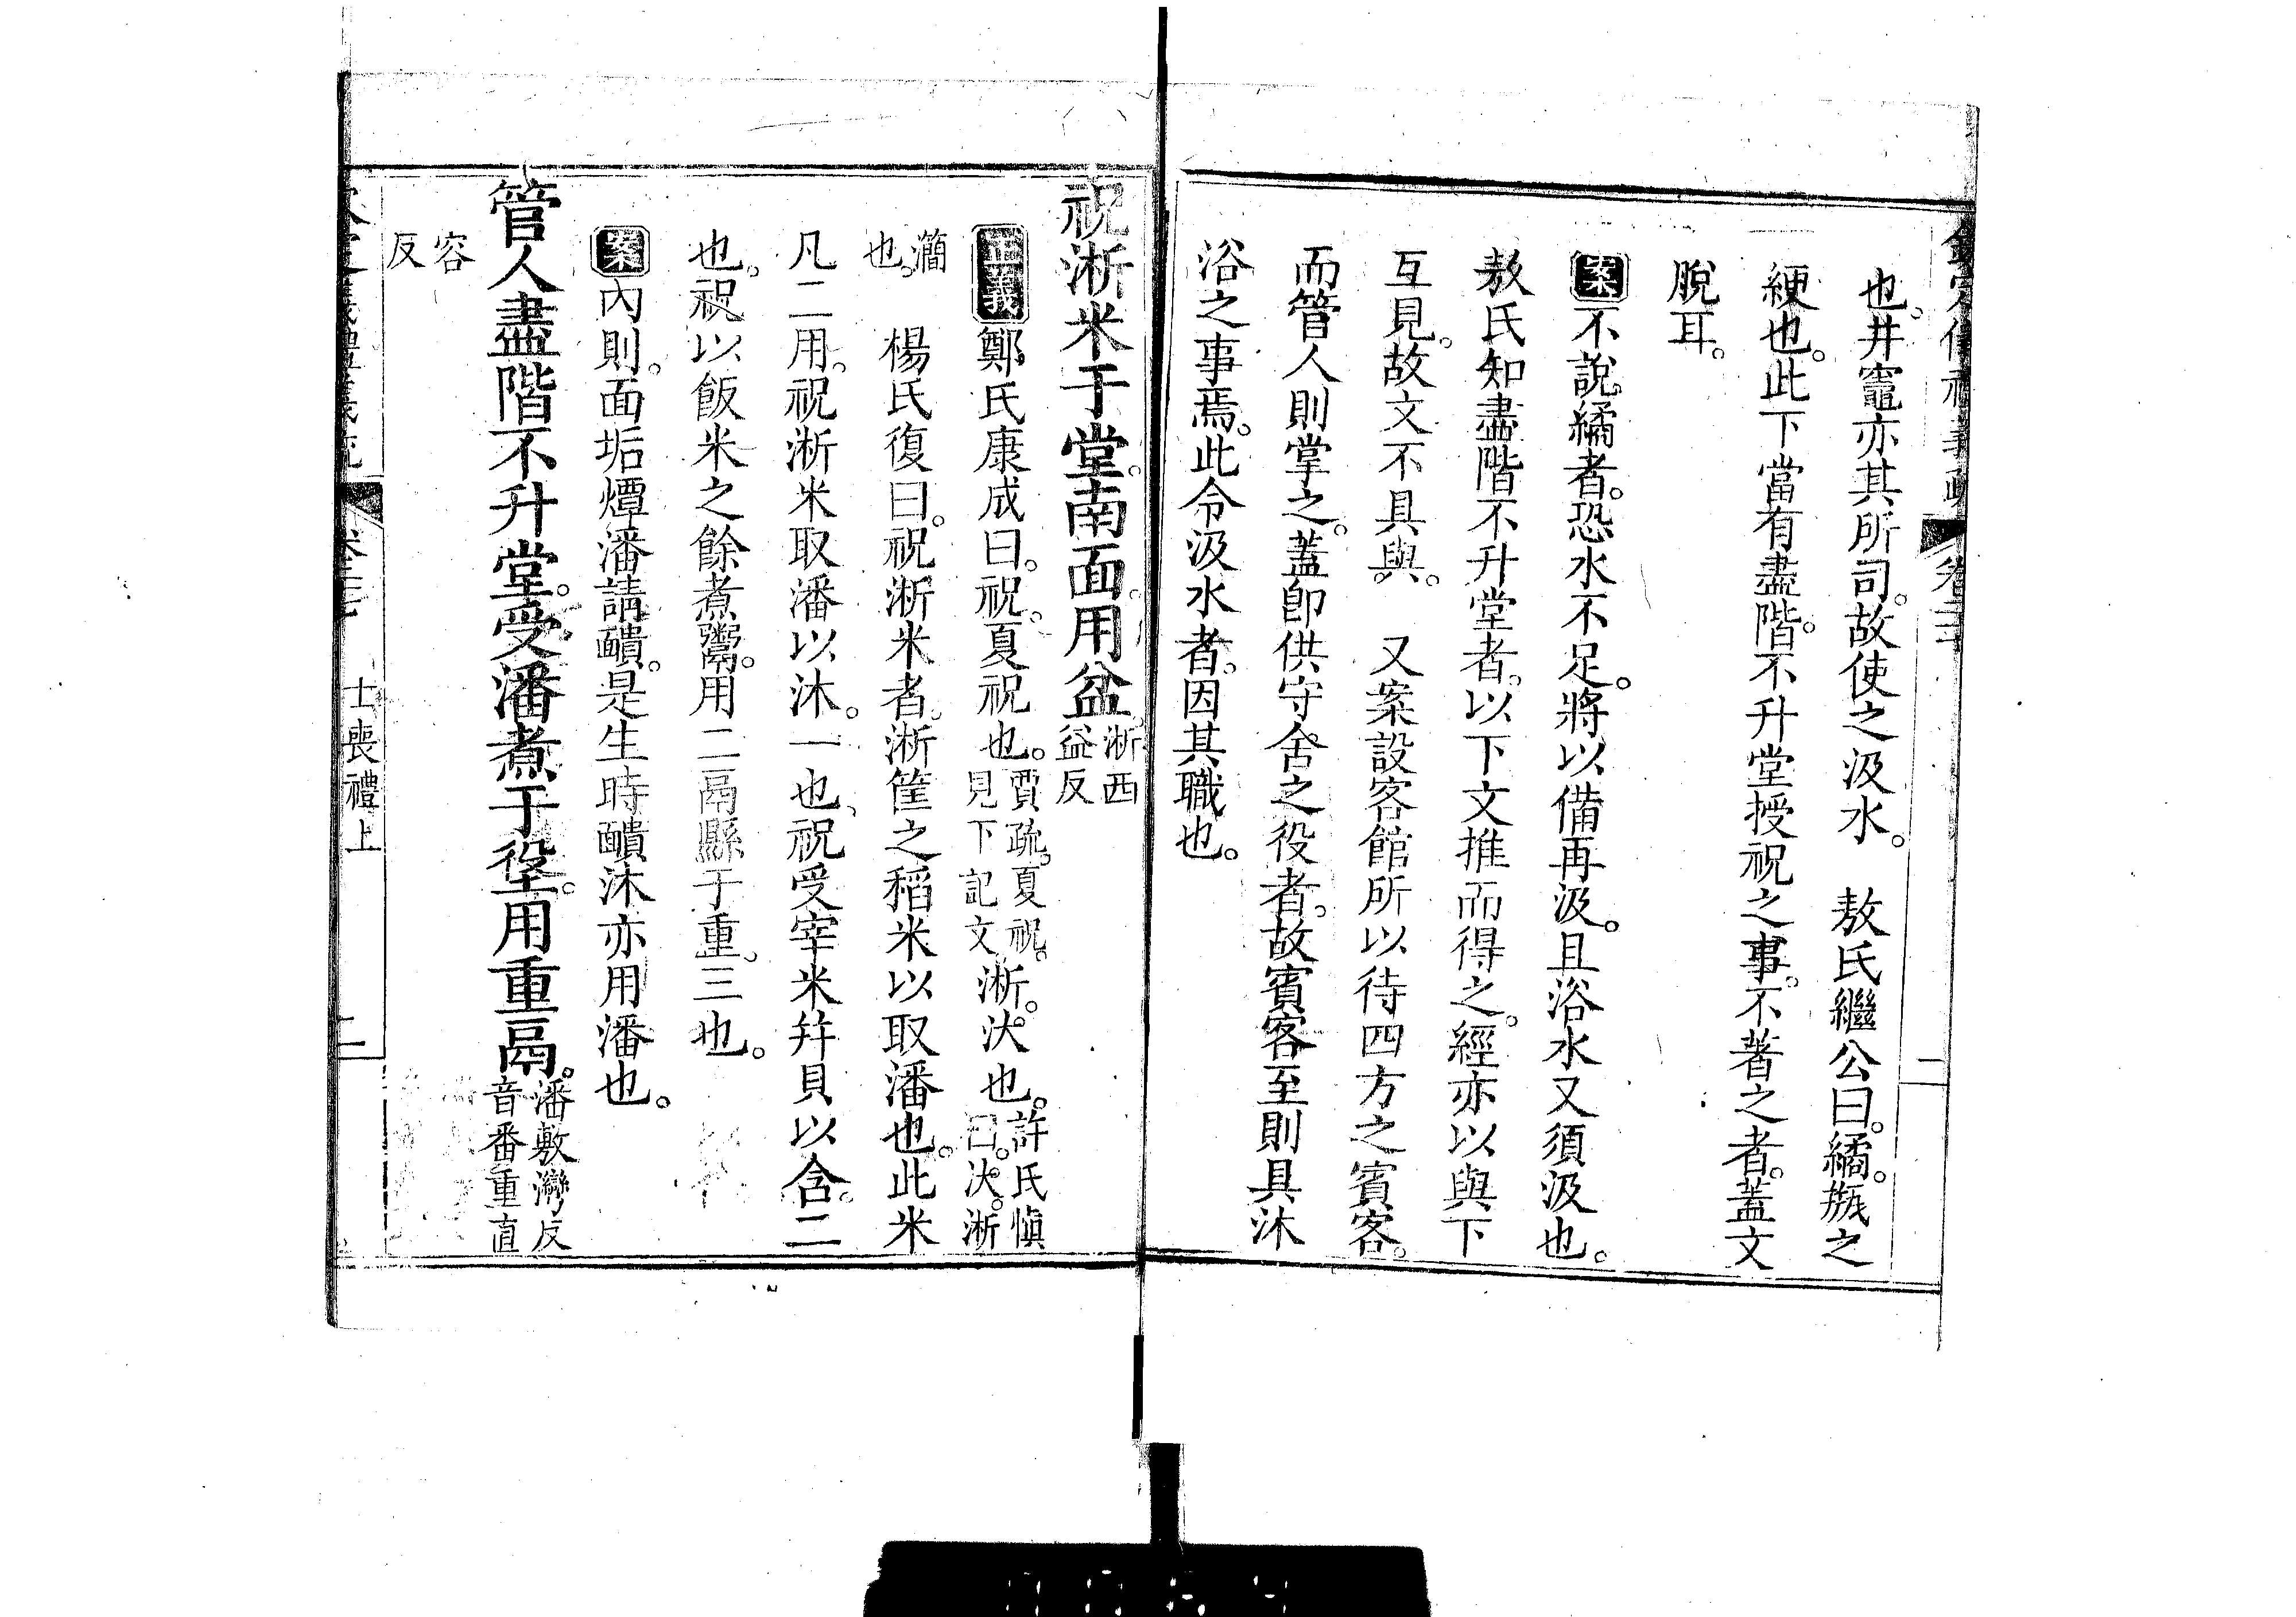 也。井竈亦其所司。故使之汲水。　敖氏繼公曰。繘。瓶之
綆也。此下當有盡階。不升堂授祝之事。不著之者。蓋文
脫耳。
案不說繘者。恐水不足。將以備再汲。且浴水又須汲也。
敖氏知盡階不升堂者。以下文推而得之。經亦以與下
互見。故文不具與。　又案設客館所以待四方之賓客。
而管人則掌之。蓋卽供守舍之役者。故賓客至則具沐
浴之事焉。此令汲水者。因其職也。
祝淅米于堂。南面。用盆。淅西益反
正義鄭氏康成曰。祝。夏祝也。賈疏。夏祝。見下記文。淅。汏也。許氏愼曰。汏。淅
灡也。　楊氏復曰。祝淅米者。淅筐之稻米以取潘也。此米
凡二用。祝淅米取潘以沐。一也。祝受宰米幷貝以含。二
也。祝以飯米之餘煮鬻。用二鬲縣于重。三也。
案內則。面垢燂潘請靧。是生時靧沐亦用潘也。
管人盡階不升堂。受潘煮于垼。用重鬲。潘敷灣反音番重直
容反
士喪禮上
二